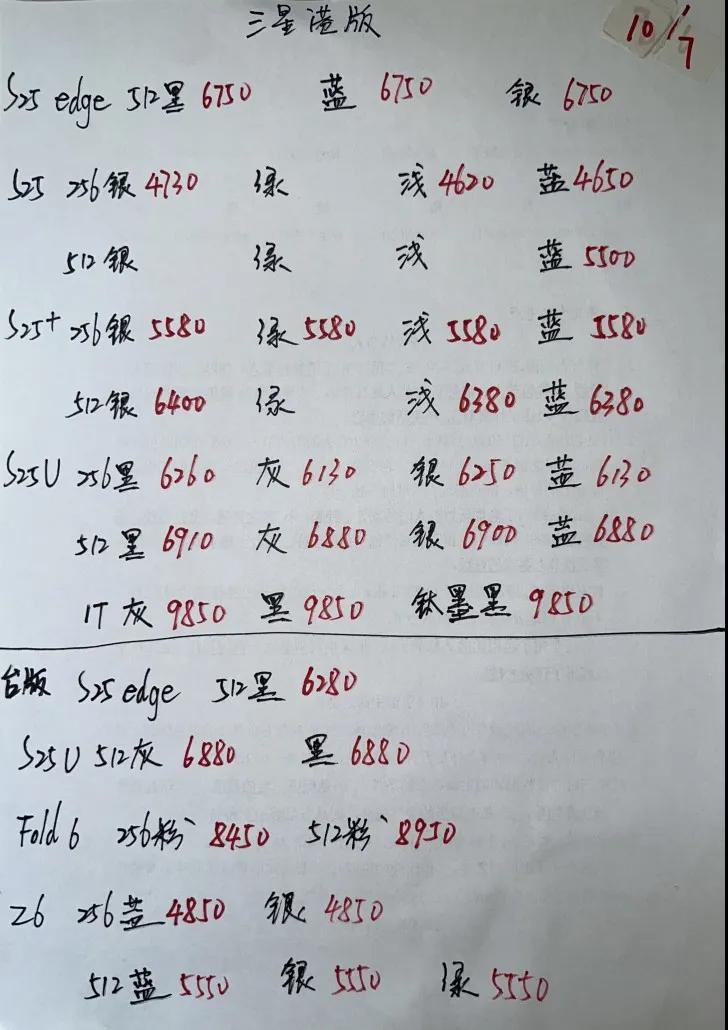 三星港版
10/7
S25 edge 512黑 6750 蓝 6750 银 6750
S25 256银 4730 绿 浅 4620 蓝 4650
512银 绿 浅 蓝 5500
S25+ 256银 5580 绿 5580 浅 5580 蓝 5580
512银 6400 绿 浅 6380 蓝 6380
S25U 256黑 6260 灰 6130 银 6250 蓝 6130
512黑 6910 灰 6880 银 6900 蓝 6880
1T 灰 9850 黑 9850 钛墨黑 9850
台版 S25 edge 512黑 6280
S25U 512灰 6880 黑 6880
Fold 6 256粉 8450 512粉 8950
Z6 256蓝 4850 银 4850
512蓝 5550 银 5550 绿 5550